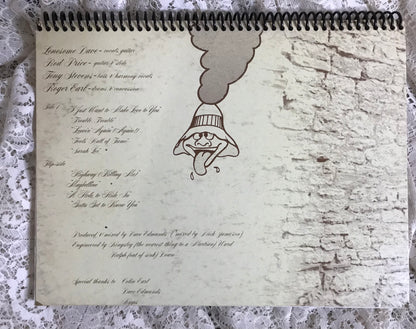 Lonesome Dave - vocals, guitar
Rod Price - guitar & slide
Tony Stevens - bass & harmony vocals
Roger Earl - drums & percussion
Side 1 "I Just Want to Make Love to You"
"Trouble, Trouble"
"Leavin' Again (Again!)"
"Fool's Hall of Fame"
"Sarah Lee"
Flip-side "Highway (Killing Me)"
"Maybelline"
"A Hole to Hide In"
"Gotta Get to Know You"
Produced & mixed by Dave Edmunds ("mixed by Nick Jameson)
Engineered by Kingsley (the nearest thing to a Martian) Ward
Ralph (out of sink) Down
Special thanks to Colin Earl
Dave Edmunds